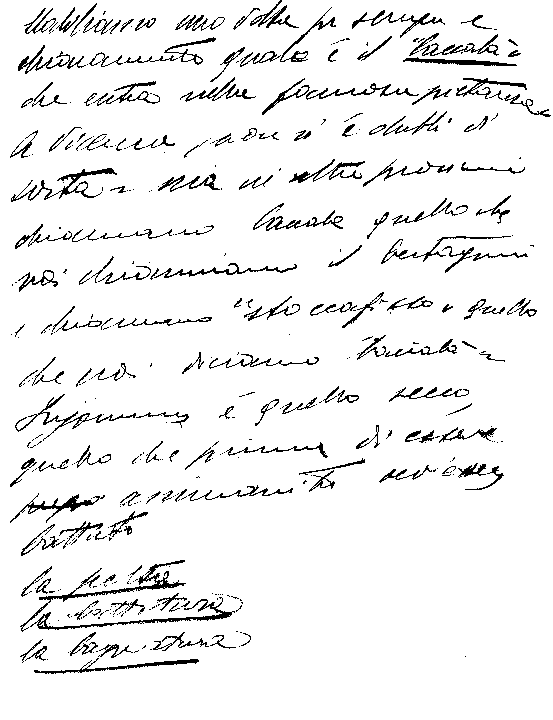 Stabiliamo una volta per sempre e
chiaramente quale è il "baccalà"
che entra nella famosa pietanza.
A Vicenza, non vi è dubbi di
sorta - ma in altre provincie
chiamano baccalà quello che
noi chiamiamo il bertagnin
e chiamano "stoccafisso" quello
che noi diciamo baccalà -
Insomma è quello secco,
quello che prima di essere
ammannito deve esser
battuto
la scelta
la battitura
la bagnatura